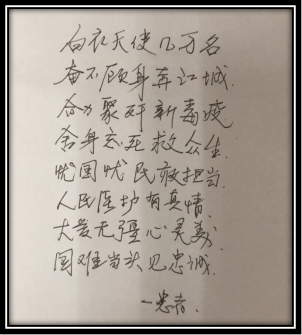 白衣天使几万名
奋不顾身奔江城.
合力聚歼新毒疫
舍身忘死救众生.
忧国忧民敢担当.
人民医护有真情.
大爱无疆心灵美.
国难当头见忠诚.
一患者.